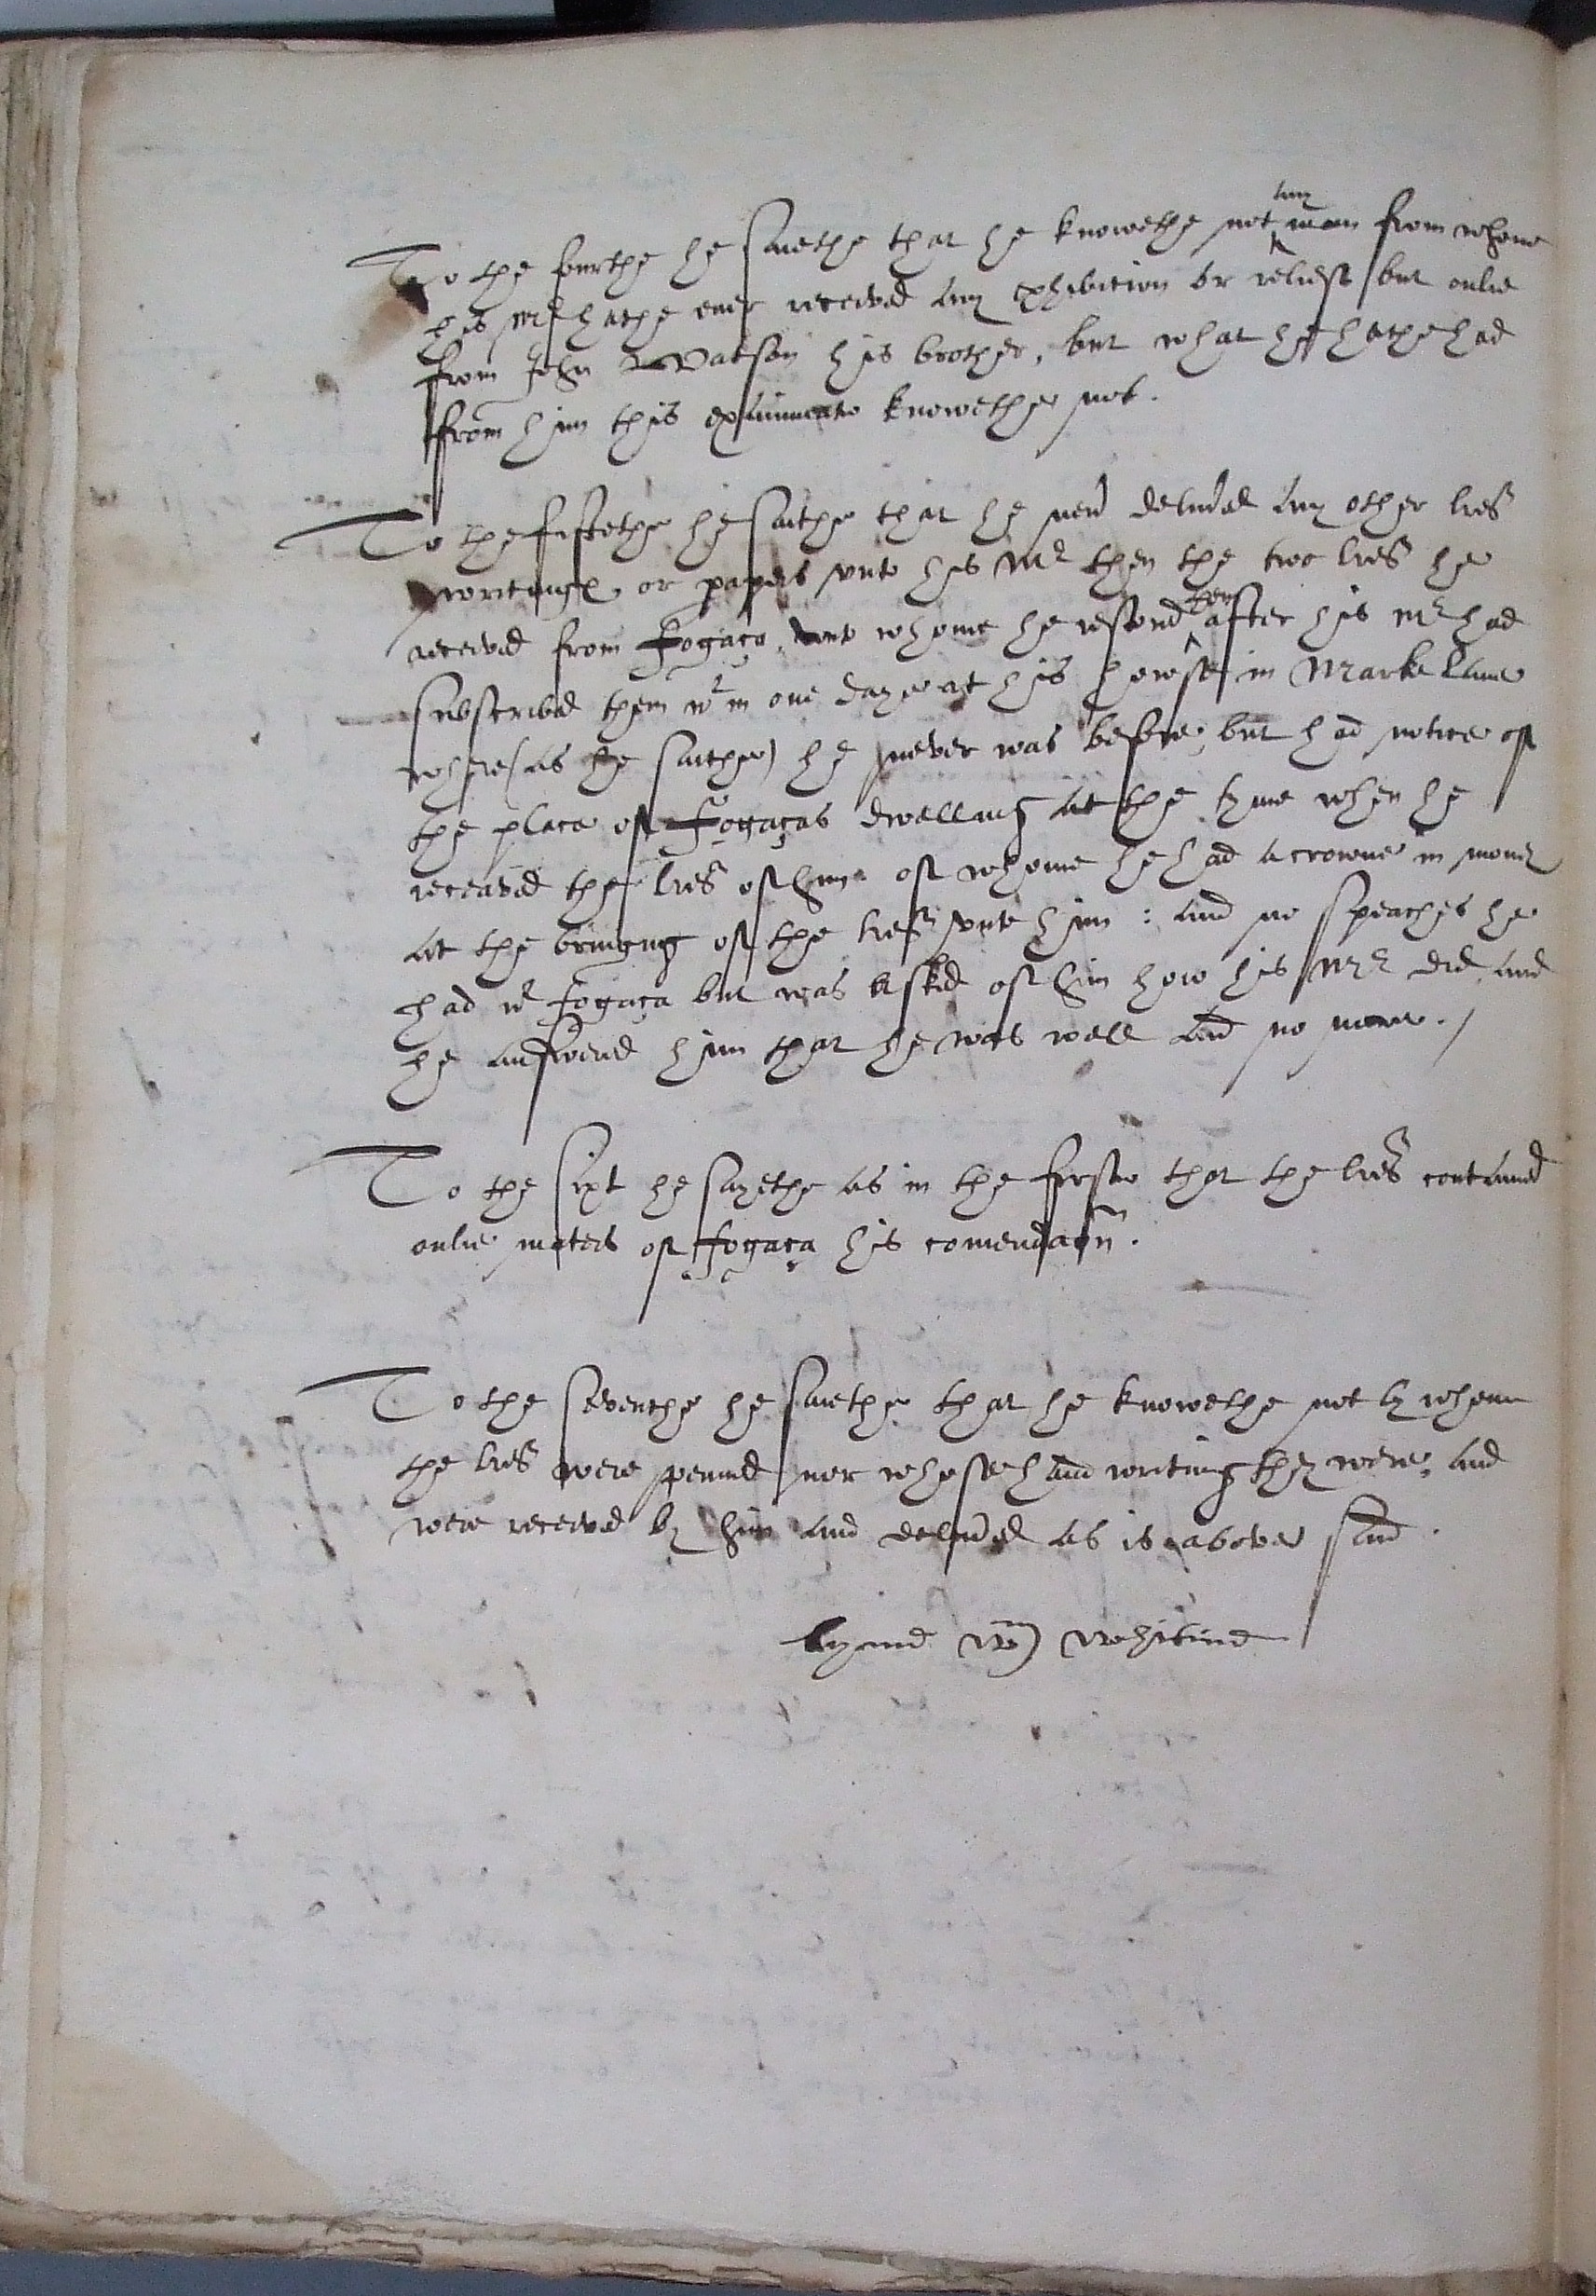 To the fourthe he saiethe that he knowethe not any man from whome
his Mr hathe ever received any exhibition or reliefe but onlie
from John Watson his brother, but what he hathe had
from him this examinate knowethe not.
To the fifte the he saithe that he neuer deliuerd any other lres
writinges or papers unto his Mr then the two lres he
received from Fogaça, unto whome he restored them after his Mr had
subscribed them wt in one daye at his howse in Marke Lane
where (as he saithe) he never was before, but had notice of
the place of Fogaças dwelling at the tyme when he
receaved the lres of him of whome he had a crowne in money
at the bringing of the lres unto him : and no speaches he
had wt Fogaça but was asked of him how his Mr did, and
he answered him that he was well and no more. /
To the sixt he sayethe as in the firste that the lres contained
onlie maters of Fogaça his comendacon.
To the seventhe he saiethe that he knowethe not by whome
the lres were penned nor whose hand writing they were, and
were received by him and deliuered as is above said.
by me Wm Whitine